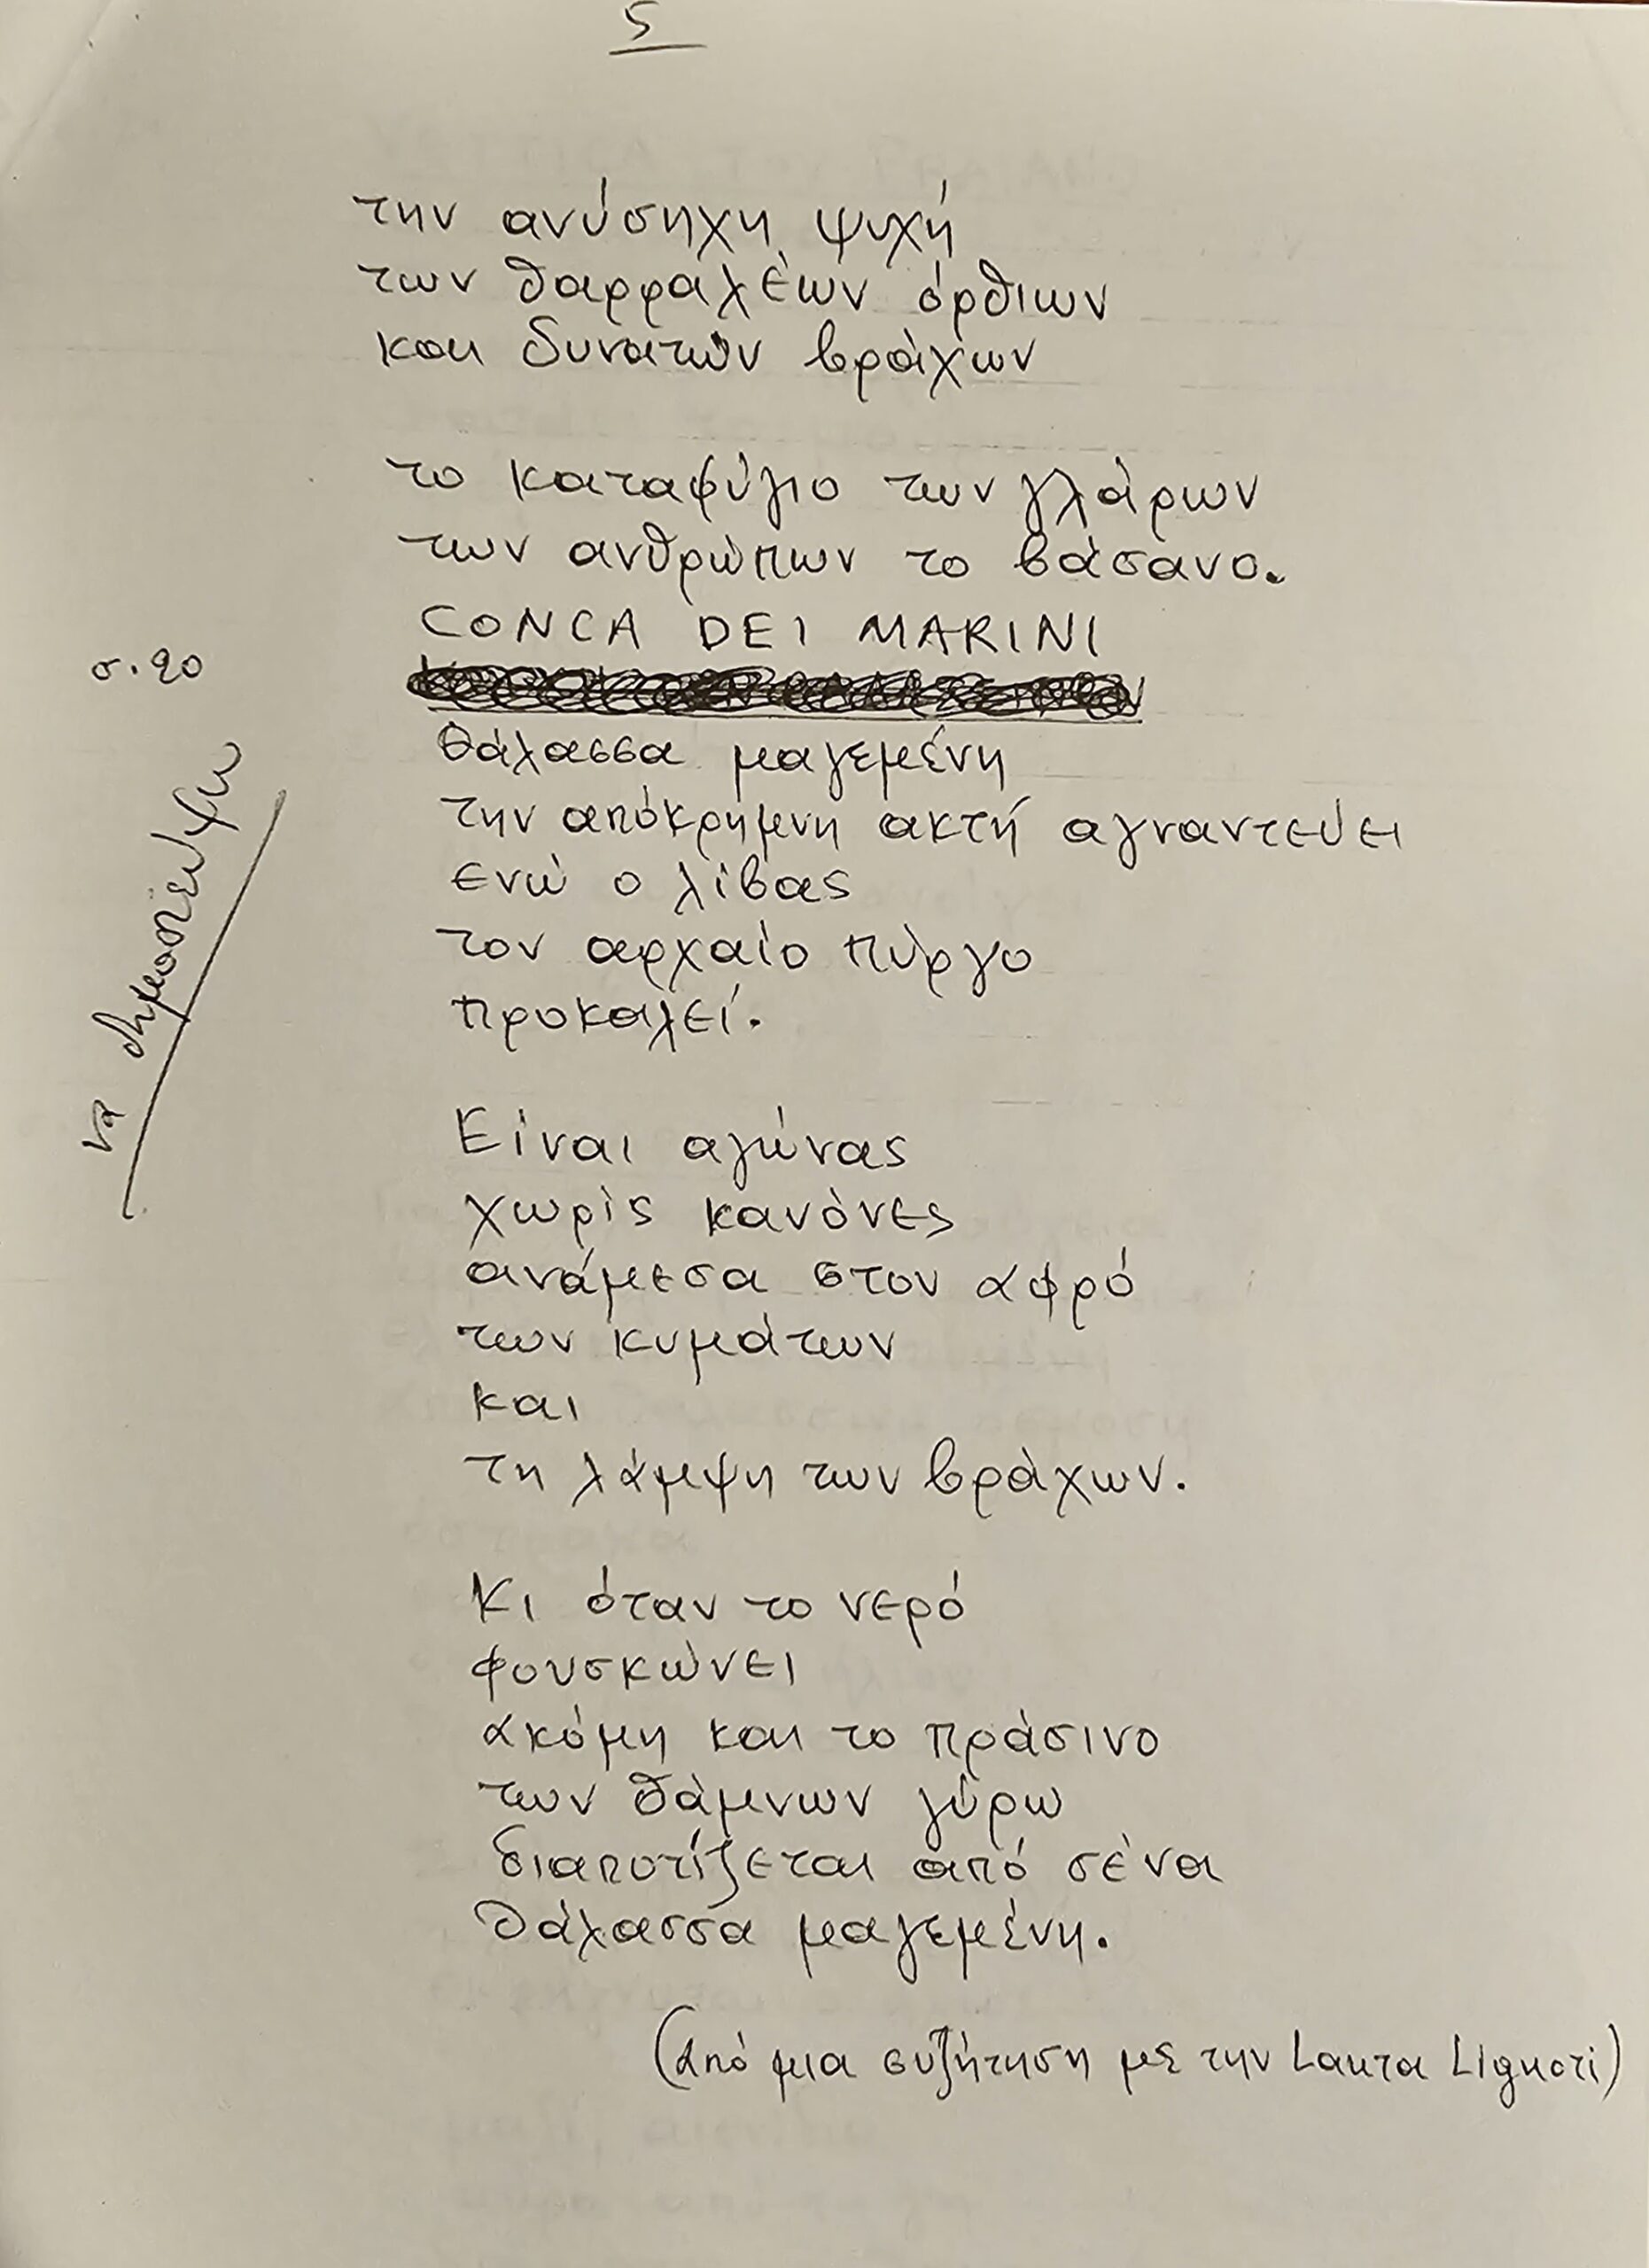 5
την ανύσηχη ψυχή
των θαρραλέων όρθιων
και δυνατών βράχων
το καταφύγιο των γλάρων
των ανθρώπων το βάσανο.
CONCA DEI MARINI
σ. 20
θάλασσα μαγεμένη
την απόκρημνη ακτή αγναντεύει
ενώ ο λίβας
τον αρχαίο πύργο
προκαλεί.
να δημοσιευψει
Είναι αγώνας
χωρίς κανόνες
ανάμεσα στον αφρό
των κυμάτων
και
τη λάμψη των βράχων.
Κι όταν το νερό
φουσκώνει
ακόμη και το πράσινο
των θάμνων γύρω
διαποτίζεται από σένα
θάλασσα μαγεμένη.
(από μια συζήτηση με την Laura Liguori)